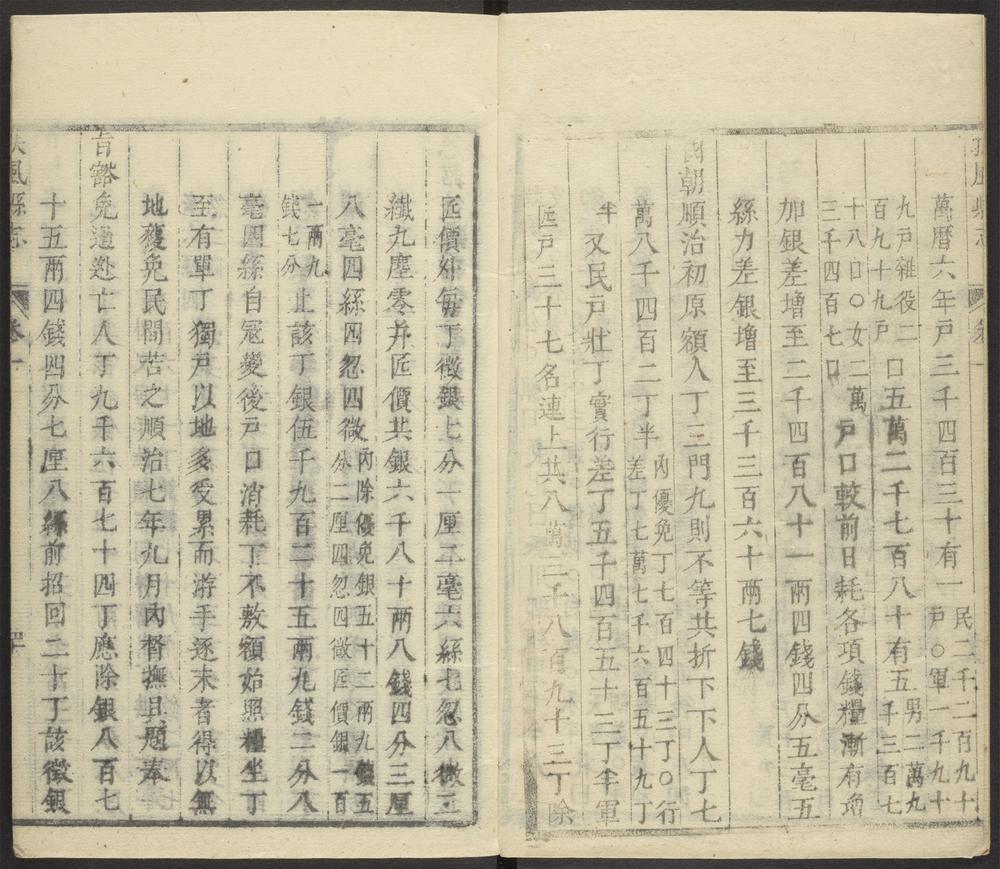 萬曆六年戶三千四百三十有一民二千二百九十
戶○軍一千九十
九戶雜役一
百九十九戶
口五萬二千七百八十有五男二萬九
千三百七
十八口○女二萬
三千四百七口
戶口較前日耗各項錢糧漸有增
加銀差增至二千四百八十一兩四錢四分五毫五
絲力差銀增至三千三百六十兩七錢
國朝順治初原額人丁三門九則不等共折下下人丁七
萬八千四百二丁半內優免丁七百四十三丁○行
差丁七萬七千六百五十九丁
半又民戶壯丁實行差丁五千四百五十三丁半軍
匠戶三十七名連上共八萬千八百九十三丁除
匠價外每丁徵銀七分一厘二毫六絲七忽八微三
纖九塵零并匠價共銀六千八十兩八錢四分三厘
八毫四絲四忽四微內除優免銀五十二兩九錢五
分二厘四忽四微匠價銀一百
一兩九
錢七分
止該丁銀伍千九百二十五兩九錢二分八
毫四絲自寇變後戶口消耗丁不敷額始照糧坐丁
至有單丁獨戶以地多受累而游手逐末者得以無
地獲免民間苦之順治七年九月內督撫具題奉
旨豁免逋逃亡人丁九千六百七十四丁應除銀八百七
十五兩四錢四分七厘八絲前招回二十丁該徵銀
扶風縣志 卷一